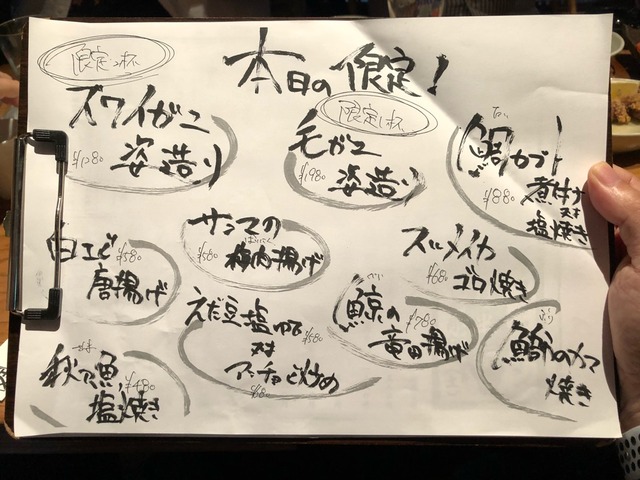 本日の限定!
限定2杯
ズワイガニ
姿造り
¥1280
限定1杯
毛ガニ
姿造り
¥1980
たい
鯛カブト
¥880
煮付け
or
塩焼き
白エビ
¥580
唐揚げ
サンマの
ばいにく
¥580
梅肉揚げ
スルメイカ
¥680
ゴロ焼き
えだ豆塩ゆで
¥580
or
アンチョビ炒め
¥680
鯨の
¥780
竜田揚げ
ぶり
鰤のカマ
焼き
さんま
秋刀魚
¥480
塩焼き